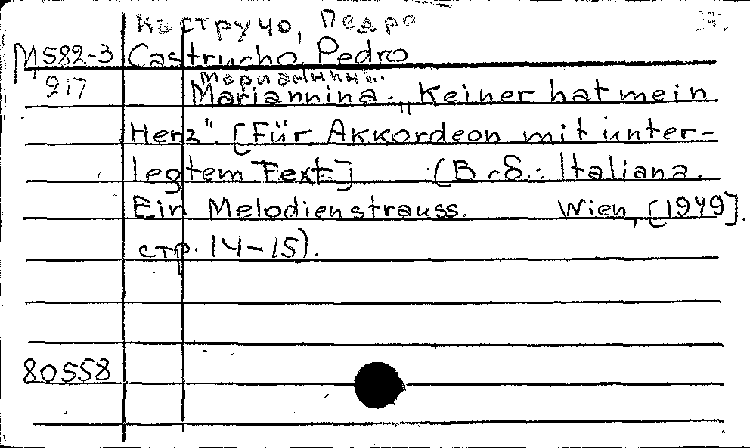 Кастручо, Педро
М 582-3 Castrucho, Pedro
917 Мариамини.
Mariannina. „Keiner hat mein
Herz". [Für Akkordeon mit unter-
legtem Text] (В сб.: Italiana.
Ein Melodienstrauss. Wien, [1949].
стр. 14-15).
80558